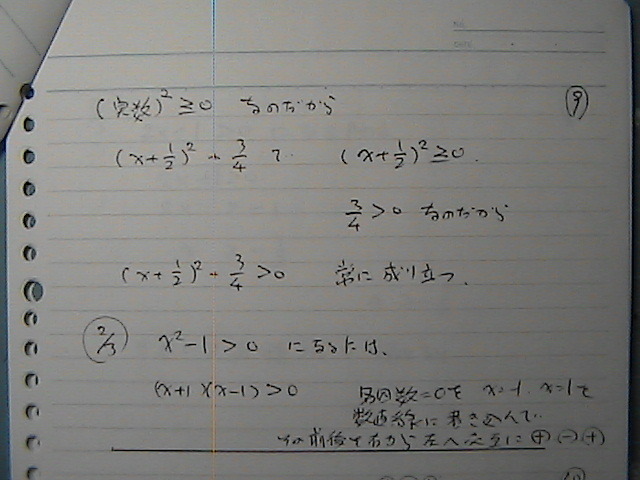 (実数)² ≥ 0 なのだから ⑨
(x+1/2)² + 3/4 で (x+1/2)² ≥ 0.
3/4 > 0 なのだから
(x+1/2)² + 3/4 > 0 常に成り立つ.
2/3 x²-1 > 0 になるには、
(x+1)(x-1) > 0 各因数=0を x=-1, x=1を
数直線に書き込んで、
その前後で右から左へ交互に ⊕ ⊖ ⊕